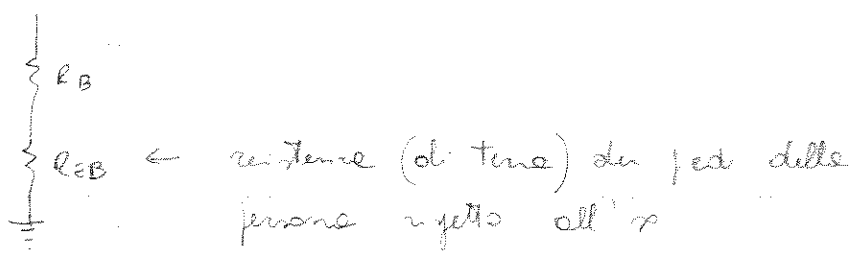 R_B
R_EB ← resistenza (di terra) dei piedi della
persona rispetto all'∞